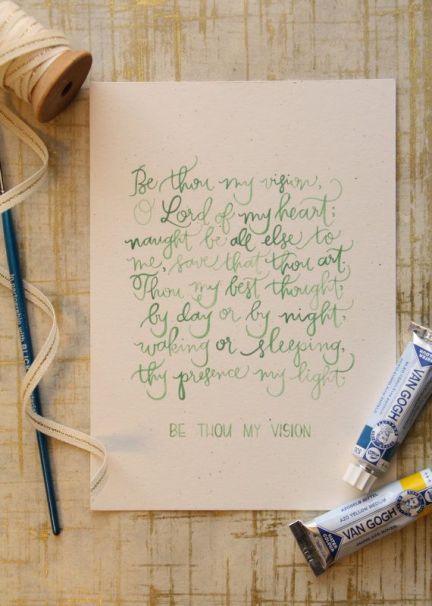 Be thou my vision,
O Lord of my heart;
naught be all else to
me, save that thou art.
Thou my best thought,
by day or by night,
waking or sleeping,
thy presence my light.
BE THOU MY VISION
VAN GOGH
AZO YELLOW MEDIUM
VAN GOGH